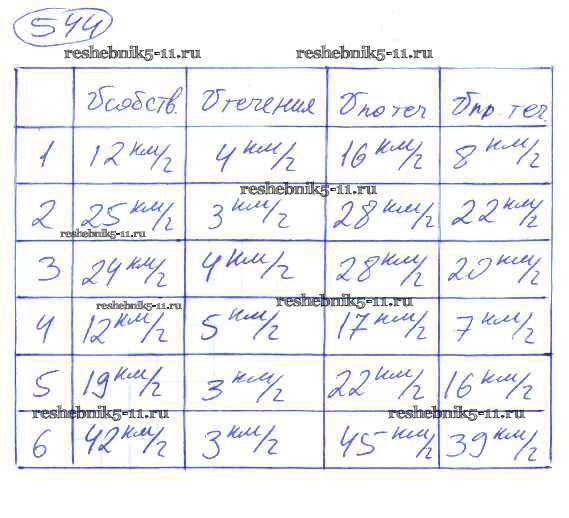 544
reshebnik5-11.ru reshebnik5-11.ru
Vсобств. Vтечения Vпо теч. Vпр. теч.
1 12 км/ч 4 км/ч 16 км/ч 8 км/ч
reshebnik5-11.ru
2 25 км/ч 3 км/ч 28 км/ч 22 км/ч
reshebnik5-11.ru
3 24 км/ч 4 км/ч 28 км/ч 20 км/ч
reshebnik5-11.ru reshebnik5-11.ru
4 12 км/ч 5 км/ч 17 км/ч 7 км/ч
5 19 км/ч 3 км/ч 22 км/ч 16 км/ч
reshebnik5-11.ru reshebnik5-11.ru
6 42 км/ч 3 км/ч 45 км/ч 39 км/ч